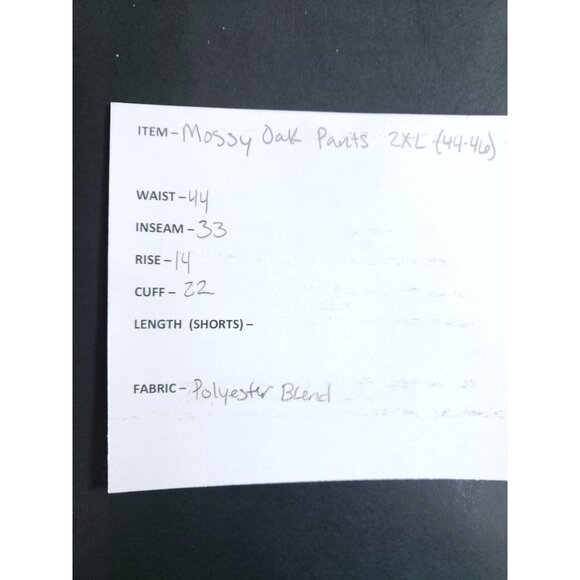 ITEM – Mossy Oak Pants 2XL (44-46)
WAIST – 44
INSEAM – 33
RISE – 14
CUFF – 22
LENGTH (SHORTS) –
FABRIC – Polyester Blend